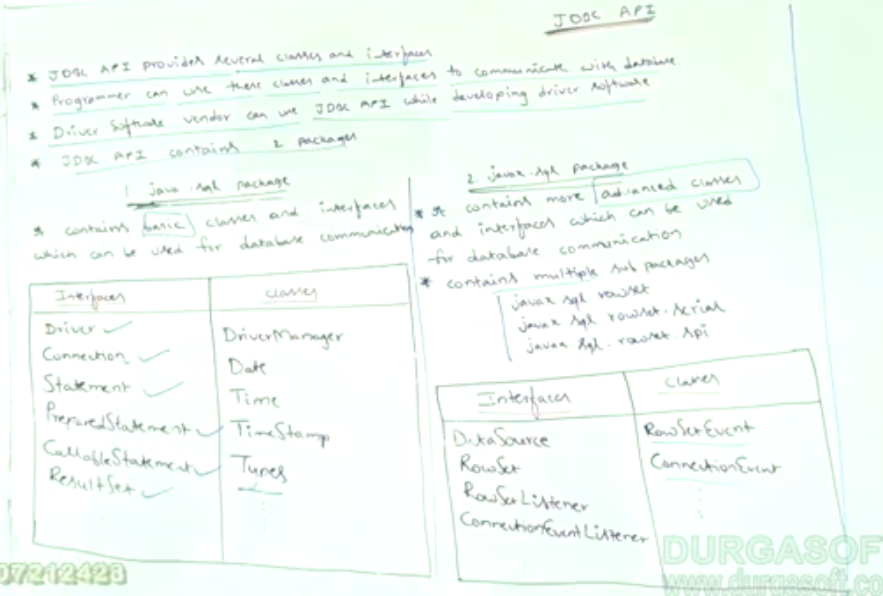 JDBC API
* JDBC API provides several classes and interfaces
* Programmer can use these classes and interfaces to communicate with database.
* Driver Software vendor can use JDBC API while developing driver software
* JDBC API contains 2 packages
1. java.sql package
* contains basic classes and interfaces
which can be used for database communication
Interfaces Classes
Driver ✓
Connection ✓
Statement ✓
PreparedStatement ✓
CallableStatement ✓
ResultSet ✓
DriverManager
Date
Time
TimeStamp
Types
2. javax.sql package
* It contains more advanced classes
and interfaces which can be used
for database communication
* contains multiple sub packages
javax.sql.rowset
javax.sql.rowset.serial
javax.sql.rowset.spi
Interfaces Classes
DataSource
RowSet
RowSetListener
ConnectionEventListener
RowSetEvent
ConnectionEvent
DURGASOF
www.durgasoft.co
07212423